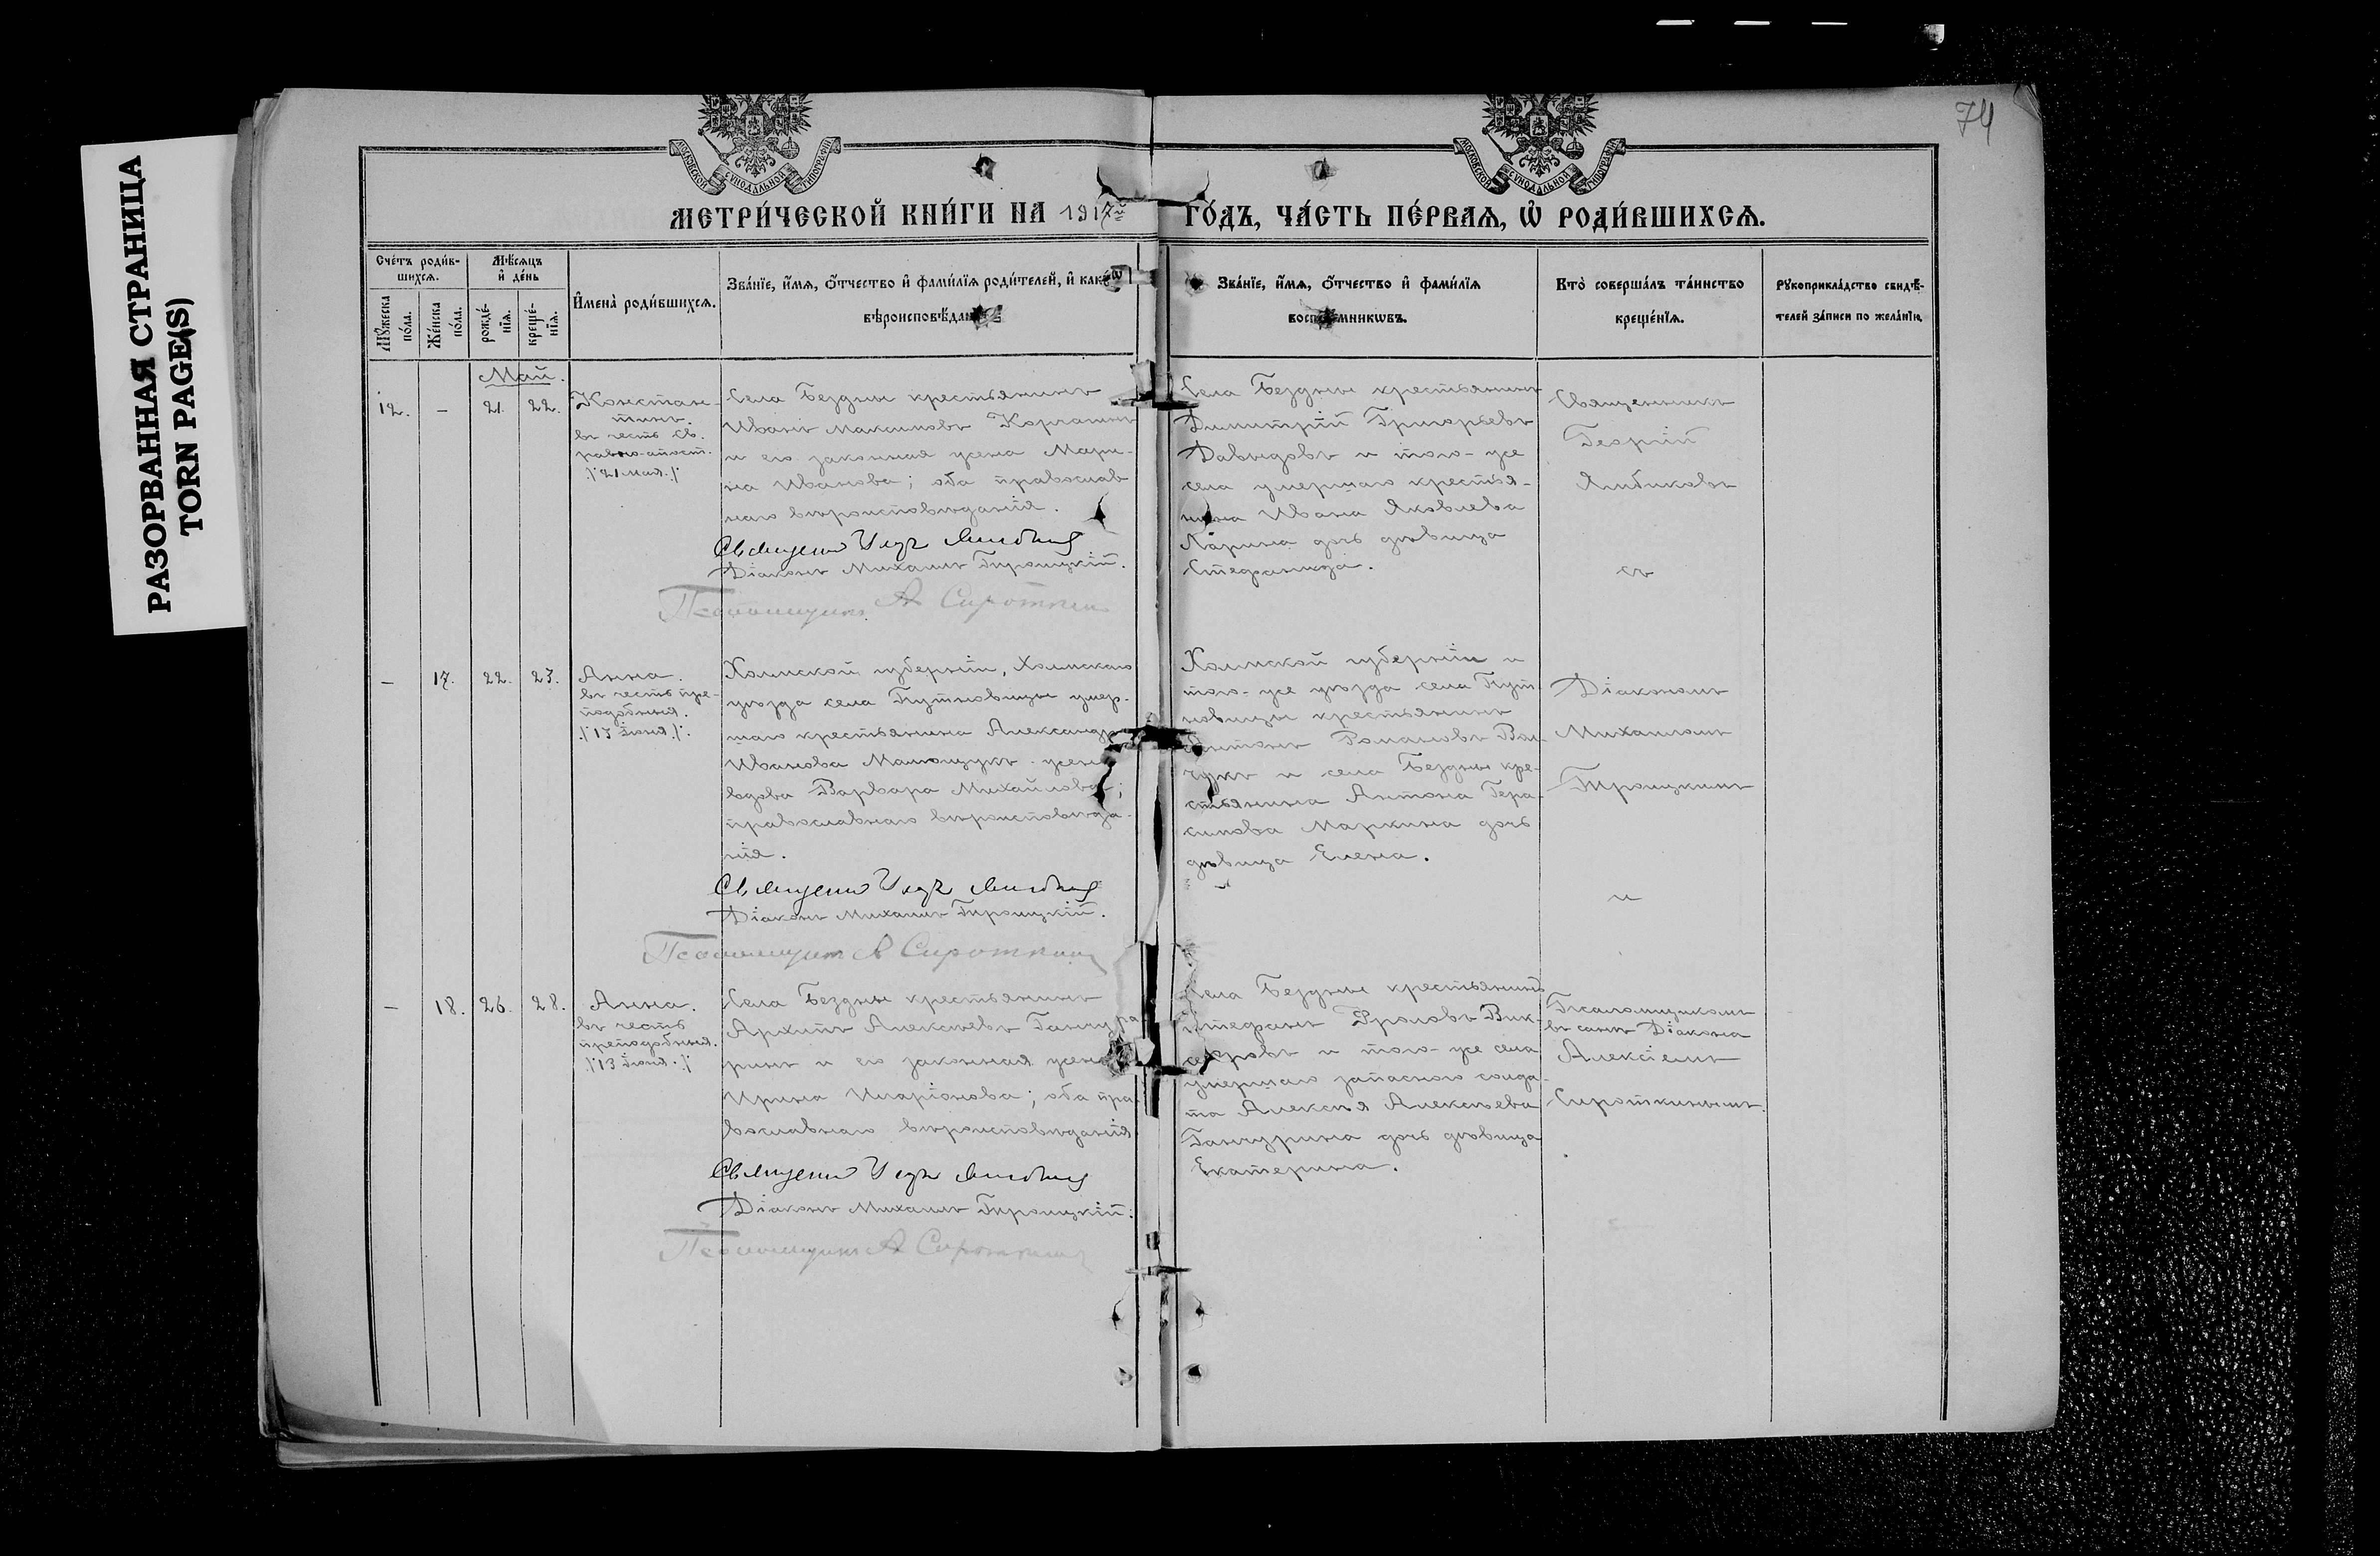 РАЗОРВАННАЯ СТРАНИЦА
TORN PAGE(S)
74
МОСКОВСКОЙ СУНОДАЛЬНОЙ ТИПОГРАФІИ
МОСКОВСКОЙ СУНОДАЛЬНОЙ ТИПОГРАФІИ
МЕТРИ́ЧЕСКОЙ КНИ́ГИ НА 1917й
ГО́ДЪ, ЧА́СТЬ ПЕ́РВАѦ, Ѿ РОДИ́ВШИХСѦ.
Сче́тъ роди́в-
шихсѧ.
Мѣ́сѧцъ
и҆ де́нь
Мꙋ́жеска
по́ла.
Же́нска
по́ла.
рожде́-
нїѧ.
креще́-
нїѧ.
И҆мена̀ роди́вшихсѧ.
Зва́нїе, и҆́мѧ, ѻ҆́тчество и҆ фами́лїѧ роди́телей, и҆ како́гѡ
вѣроисповѣ́данїѧ
Зва́нїе, и҆́мѧ, ѻ҆́тчество и҆ фами́лїѧ
воспрїе́мникѡвъ.
Кто̀ соверша́лъ та́инство
креще́нїѧ.
Рꙋкоприкла́дство свидѣ́-
телей за́писи по жела́нїю.
Май.
12. – 21. 22.
Констан-
тинъ.
въ честь св.
равно-апост.
/21 мая./
Села Бездны крестьянинъ
Иванъ Максимовъ Корчагинъ
и его законная жена Мари-
на Иванова; оба православ
наго вѣроисповѣданія.
Діаконъ Михаилъ Троицкій.
Псаломщикъ А Сироткинъ
Села Бездны крестьянинъ
Димитрій Григорьевъ
Давыдовъ и того-же
села умершаго крестья-
нина Ивана Яковлева
Ларина дочь дѣвица
Стефанида.
Священникъ
Георгій
Ямбиковъ
съ
– 17. 22. 23.
Анна.
въ честь пре-
подобныя.
/13 Іюня/.
Холмской губерніи, Холмскаго
уѣзда села Путновицы умер-
шаго крестьянина Александра
Иванова жена
вдова Варвара Михайлова;
православнаго вѣроисповѣда-
нія.
Діаконъ Михаилъ Троицкій.
Псаломщикъ А Сироткинъ
Холмской губерніи и
того-же уѣзда села Пут
новицы крестьянинъ
Антонъ Романовъ Вой-
чукъ и села Бездны кре-
стьянина Антона Гера-
симова Маркина дочь
дѣвица Елена.
Діакономъ
Михаиломъ
Троицкимъ
и
– 18. 26. 28.
Анна.
въ честь
преподобныя.
/13 Іюня./
Села Бездны крестьянинъ
Архипъ Алексѣевъ Ганчу
ринъ и его законная жена
Ирина Иларіонова; оба пра-
вославнаго вѣроисповѣданія
Діаконъ Михаилъ Троицкій.
Псаломщикъ А Сироткинъ
Села Бездны крестьянинъ
Стефанъ Фроловъ Вик-
торовъ и того-же села
умершаго запаснаго солда-
та Алексѣя Алексѣева
Ганчурина дочь дѣвица
Екатерина.
Псаломщикомъ
въ санѣ Діакона
Алексіемъ
Сироткинымъ.